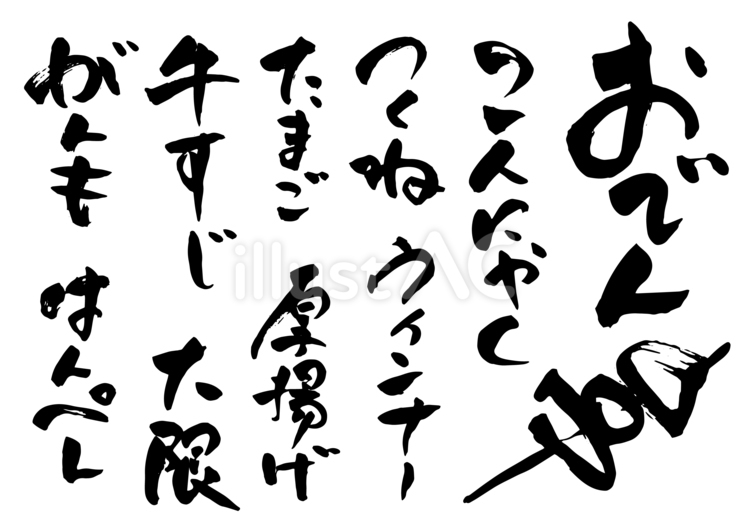 おでん
のこんにゃく
つくね
ウィンナー
たまご
厚揚げ
牛すじ
大根
がんも
はんぺん
illustAC